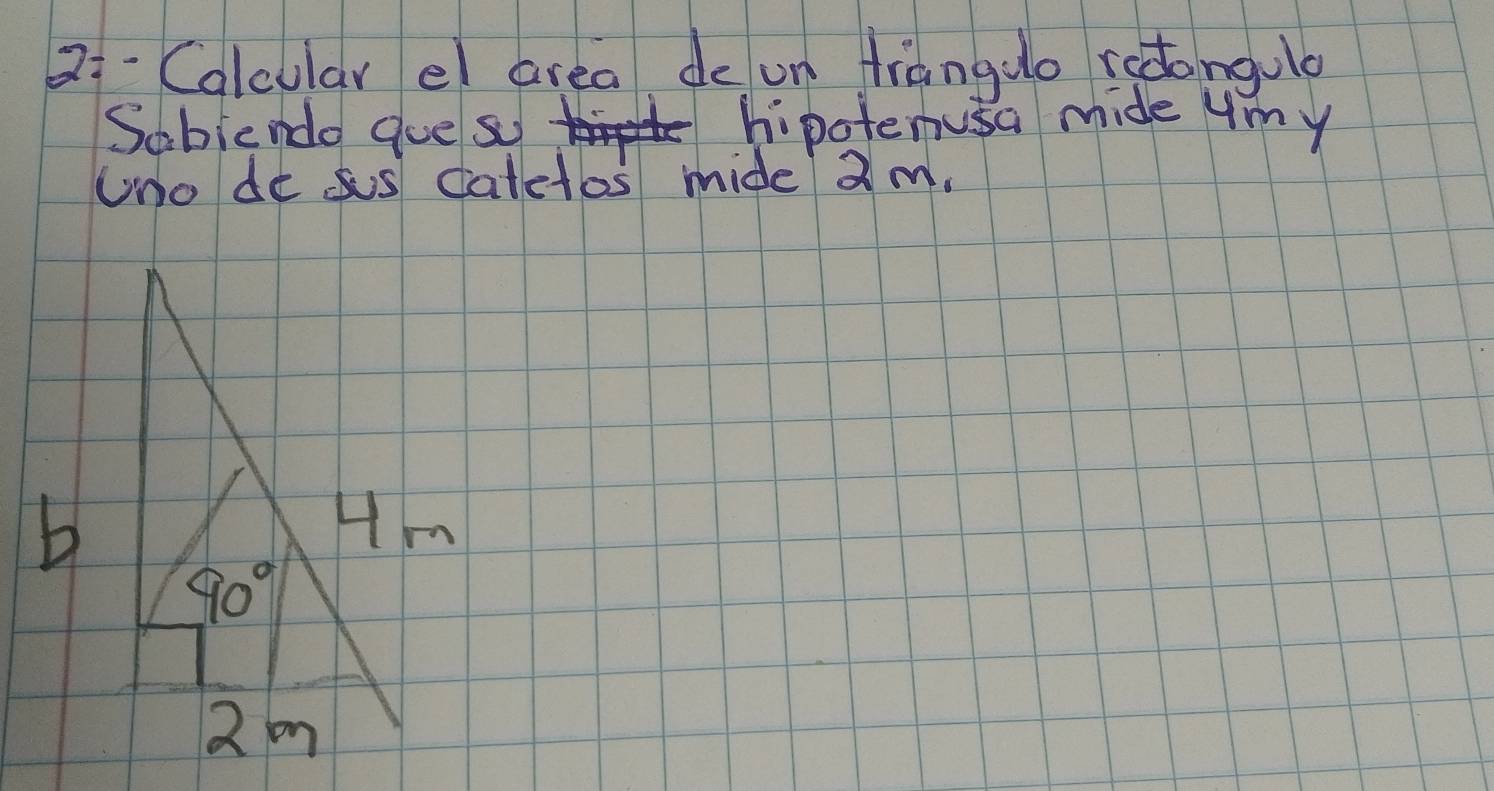 2=- Calcular el área de un triángulo rectángulo
Sabiendo que su hipotenusa mide 4m y
uno de sus catetos mide 2m.
b
4m
90°
2m